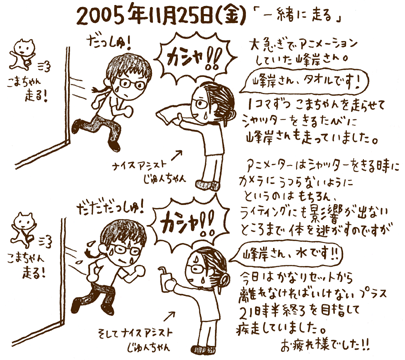 2005年11月25日(金)「一緒に走る」
だっしゅ!
カシャ!!
こまちゃん
走る!
ナイスアシスト
じゅんちゃん
大急ぎでアニメーション
していた峰岸さん。
峰岸さん、タオルです!
1コマずつ こまちゃんを走らせて
シャッターをきるたびに
峰岸さんも走っていました。
アニメーターはシャッターをきる時に
カメラにうつらないように
というのはもちろん、
ライティングにも影響が出ない
ところまで体を逃がすのですが
だだだだっしゅ!
カシャ!!
こまちゃん
走る!
そしてナイスアシスト
じゅんちゃん
峰岸さん、水です!!
今日はかなりセットから
離れなければいけない プラス
21時半終了を目指して
疾走していました。
お疲れ様でした!!